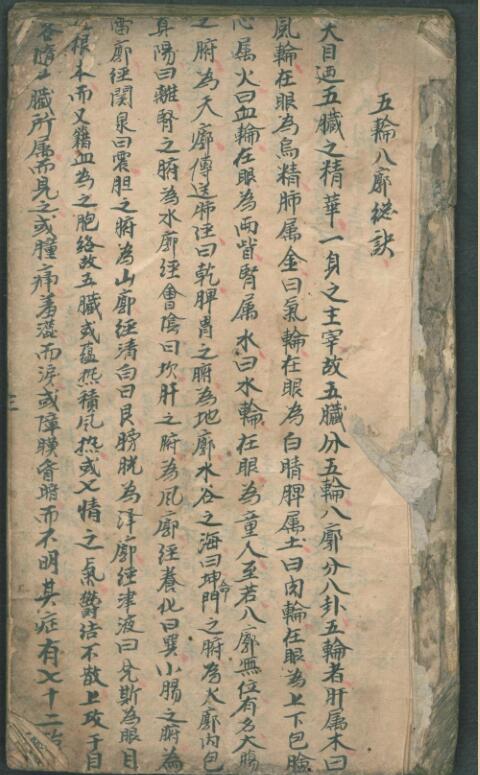 五輪八廓總訣
夫目迺五臟之精華一身之主宰故五臟分五輪八廓分八卦五輪者肝属木曰
風輪在眼為烏精肺属金曰氣輪在眼為白睛脾属土曰肉輪在眼為上下包臉
心属火曰血輪在眼為两眥腎属水曰水輪在眼為童人至若八廓無位有名大腸
之腑為天廓傳送肺經曰乾脾胃之腑為地廓水谷之海曰坤命門之腑為火廓内包
真陽曰離腎之腑為水廓經會陰曰坎肝之腑為風廓經養化曰巽小腸之腑為
雷廓經関泉曰震胆之腑為山廓經清白曰艮膀胱為泽廓經津液曰兌斯為眼目
根本而又籍血為之胞絡故五臟或蘊熱積風熱或七情之氣欝结不散上攻于目
各隨五臟所属而見之或腫痛羞澁而淚或障膜昏暗而不明其症有七十二治